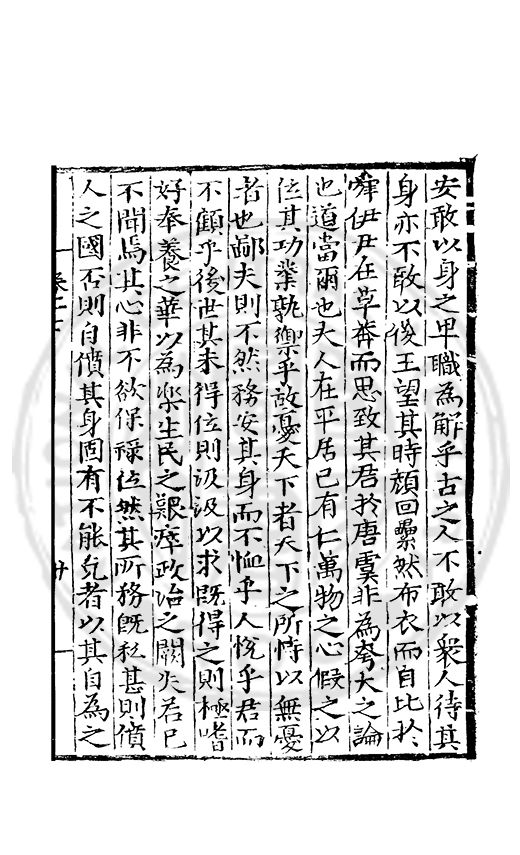 安敢以身之卑職為解乎古之人不敢以衆人待其
身亦不敢以後王望其時顔回纍然布衣而自比於
舜伊尹在草莽而思致其君於唐虞非為夸大之論
也道當爾也大人在平居已有仁萬物之心假之以
位其功業孰禦乎故憂天下者天下之所恃以無憂
者也鄙夫則不然務安其身而不恤乎人悅乎君而
不顧乎後世其未得位則汲汲以求既得之則極嗜
好奉養之華以為樂生民之艱瘁政治之闕失若已
不聞焉其心非不欲保祿位然其所務既私甚則僨
人之國否則自僨其身固有不能免者以其自為之
卷二下
廿